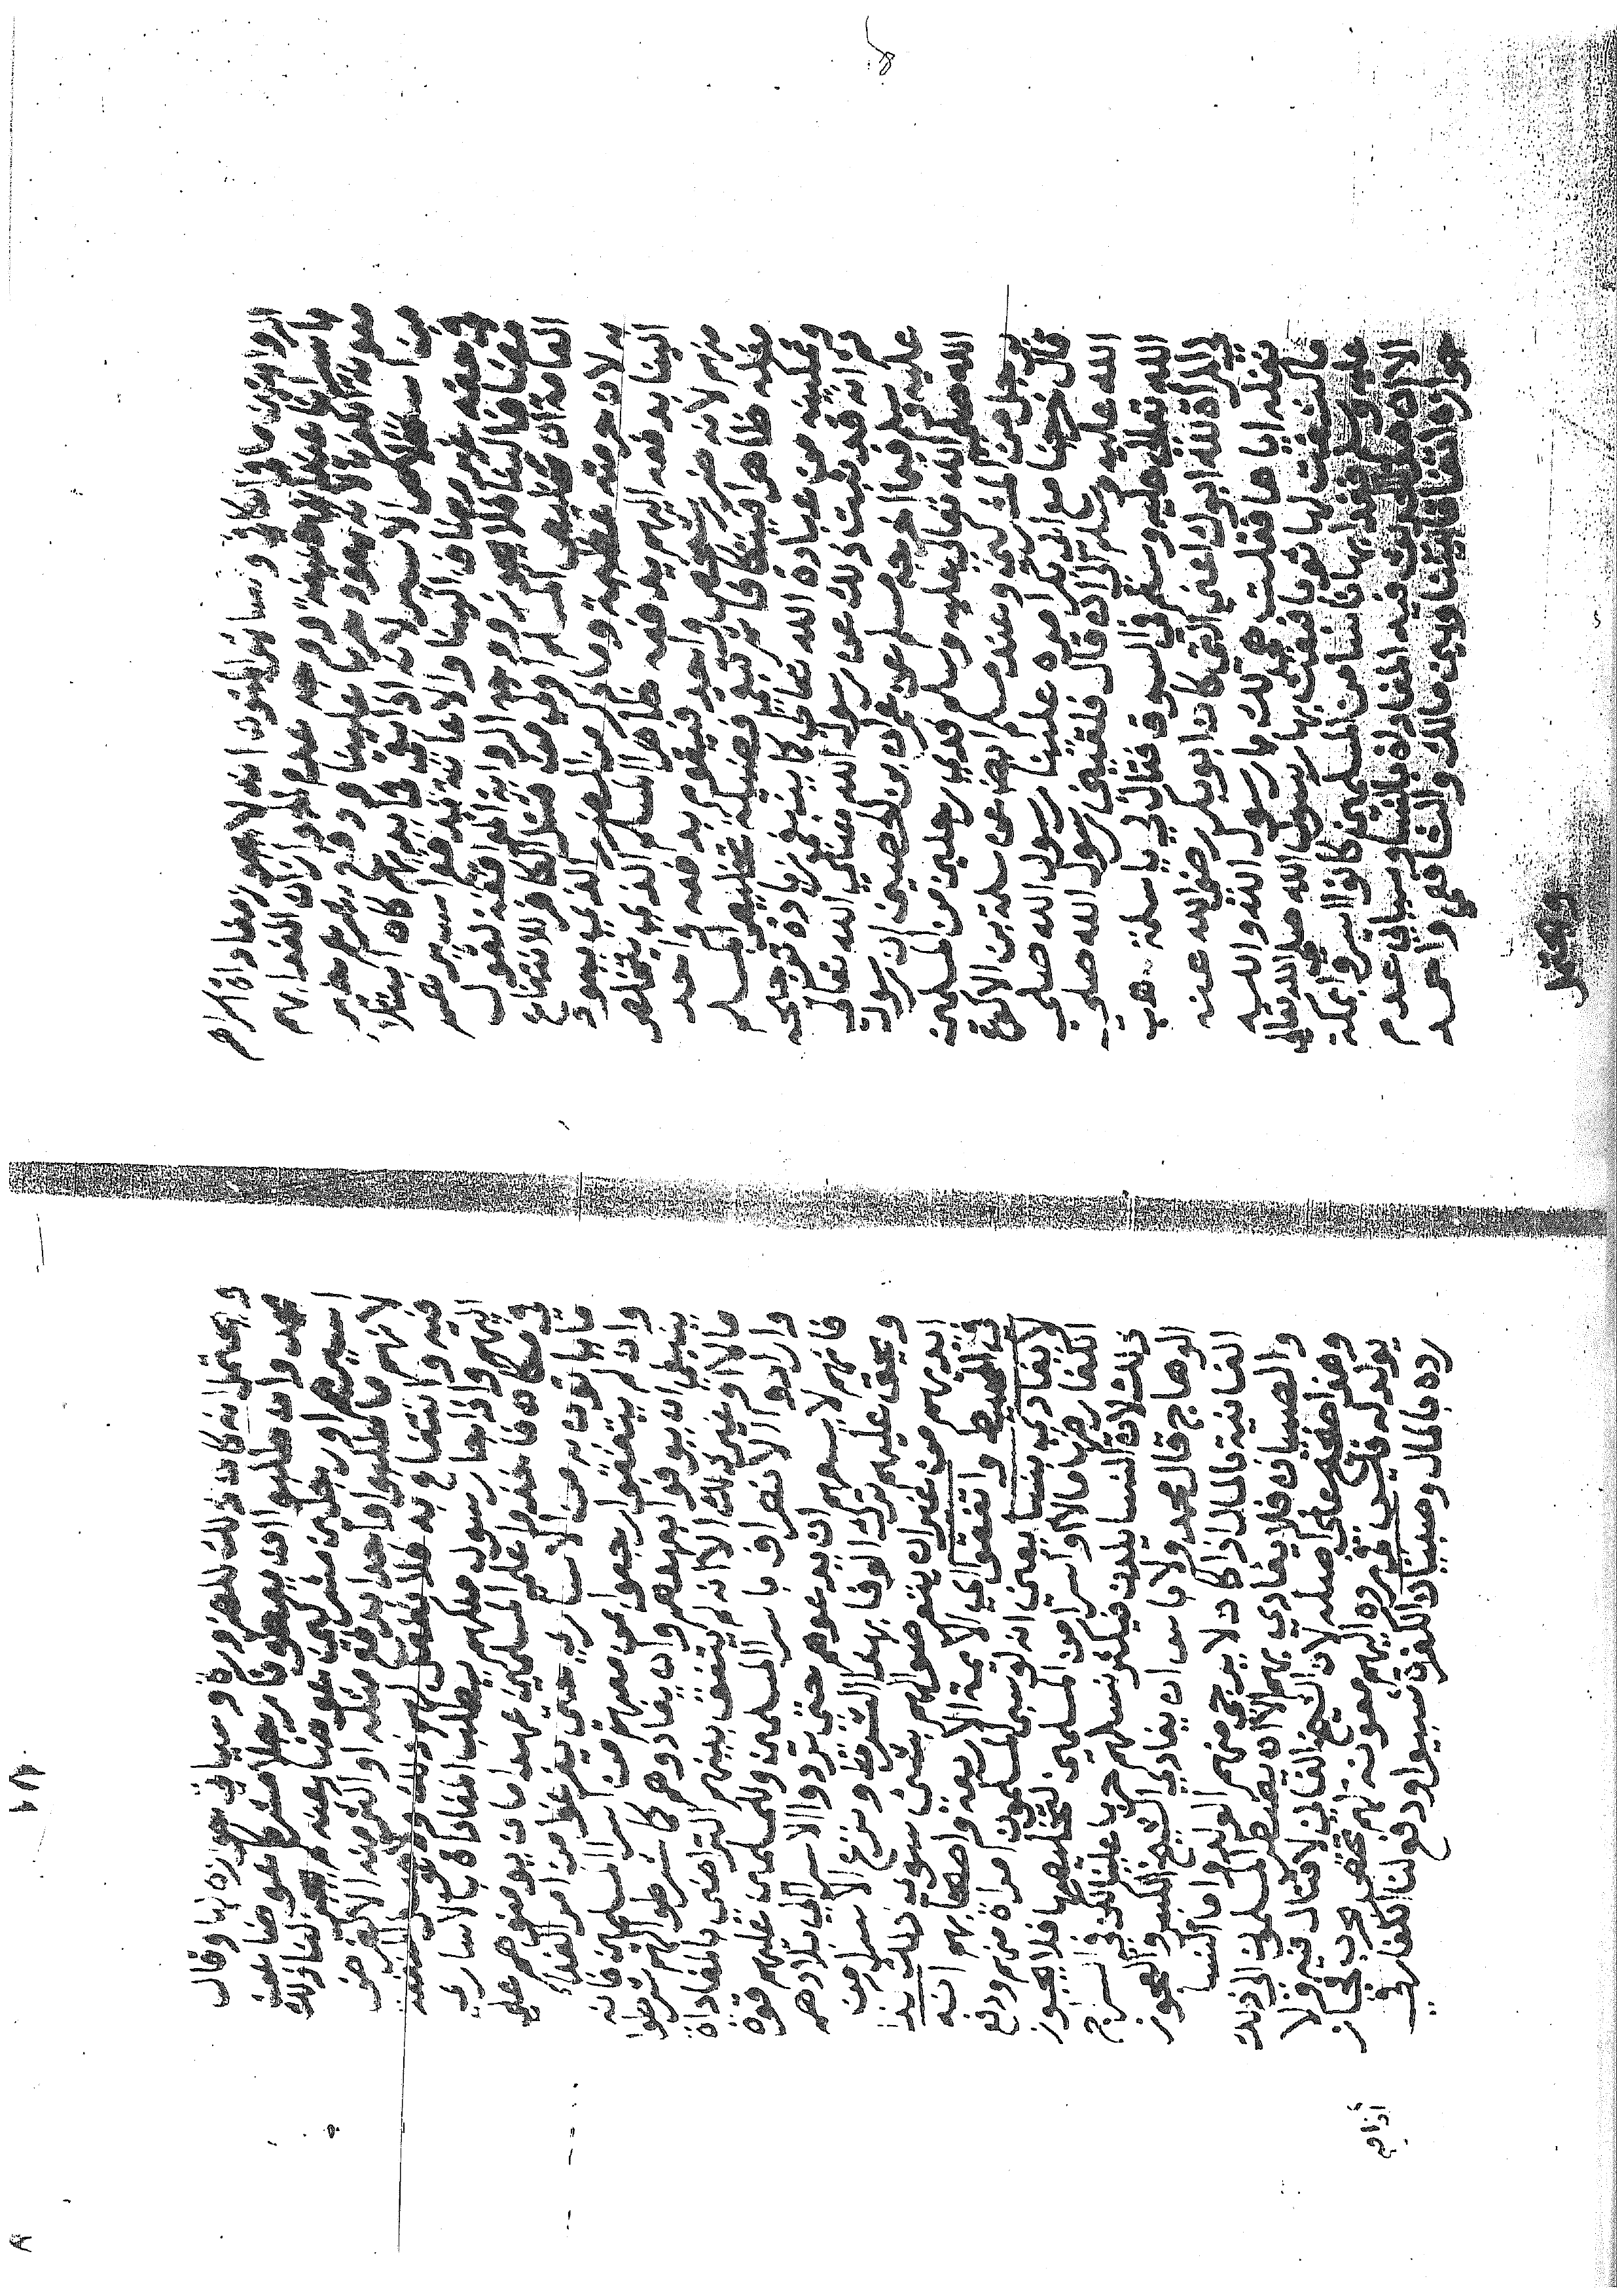 الروايتين ما في الكافي وسائر المتون انه لا يجوز مفاداة اسراهم
باسرانا عند ابي حنيفة وجه عدم الجواز ان الفداء بهم
معونة الكفرة لانه يعود حربا علينا ودفع شر حرابه خير
من استنقاذ الاسير لانه اذا بقي في ايديهم كان ابتلاء
في حقه غير مضاف الينا والاعانة بدفع اسيرهم
مضاف الينا فلا يجوز ووجه الرواية الموافقة لقول
العامة ان تخليص المسلم اولى من قتل الكافر للانتفاع
به لان حرمته عظيمة وما ذكر من الضرر الذي يعود
الينا بدفعه اليهم يدفعه ظاهر المسلم الذي يتخلص
منهم لانه ضرر شخص واحد فيقوم بدفعه واحد
مثله ظاهرا فيتكافآن ثم تبقى فضيلة تخليص المسلم
وتمكينه من عبادة الله تعالى كما ينبغي زيادة ترجيح
ثم انه قد ثبت ذلك عن رسول الله صلى الله تعالى
عليه وسلم فيما اخرجه مسلم عن عمران بن الحصين ان رسول
الله صلى الله تعالى عليه وسلم فدى رجلين من المسلمين
برجل من المشركين وعند مسلم ايضا عن سلمة بن الاكوع
قال خرجنا مع ابي بكر امره علينا رسول الله صلى
الله عليه وسلم الى ان قال فلقيني رسول الله صلى
الله تعالى عليه وسلم في السوق فقال لي يا سلمة هب
لي المراة لله ابوك اعني التي كان ابو بكر رضي الله عنه
نفله اياها فقلت هي لك يا رسول الله والله
ما كشفت لها ثوبا فبعث بها رسول الله صلى الله تعالى
عليه وسلم ففدا بها ناسا من المسلمين كانوا اسروا بمكة
الا ان هذا الحديث فيه المفاداة بالنساء وسياتي عدم
جوازه اتفاقا بيننا وبين مالك والشافعي واحمد
ويحتمل
ويحتمل انه كان ذلك للضرورة وسياتي جوازه بها وقال
محمد وان طلبوا ان يعطونا رجلا مشركا عوضا بعض
اسيرهم او رجلين مشركين عوضا عنه لنا ذلك
لانهم ما طلبوا واحدا بدفع مثله او اكثر منه الا لغرض
فيه وانتفاع به
اليهم واذا جاء رسول ملكهم يطلب المفاداة بالاسارى
في مكان فاخذوا على المسلمين عهدا بان يومنوهم على
ما ياتون به من الاسارى حتى يفرغوا من امر الفداء
وان لم يتفقوا رجعوا بمن معهم من اسراء المسلمين فانه
ينبغي ان يوفوا بعهدهم وان يفادوهم كما شرطوا لهم شرطوا
مالا او غير ذلك الا انه لم يتفق بينهم التراضي بالمفاداة
وارادوا الانصراف باسراء المسلمين وللمسلمين عليهم قوة
فانهم لا يسعهم ان يدعوهم حتى يردوا الاسراء الى بلادهم
ويحق عليهم ترك الوفا بهذا الشرط ونزع الاسراء من
ايديهم من غير ان يتعرضوا لهم بشئ سوى ذلك
في المحيط واتفقوا اي الائمة الاربعة واصحابهم انه
لا يفادي بنسا يعني انه لو سبى المسلمون امراة منهم ودفع
الكفار فيها مالا او اسيرا من المسلمين لتخليصها فلا يجوز
ذلك لان النسا يلدن فيكثر نسلهم حربا علينا لكن في السراج
الوهاج قال محمد ولا باس ان يفادي الشيخ الكبير والعجوز
الفانية بالمال اذا كان لا يرجى منهم الولد واما النسا
والصبيان فلا يفادي بهم الا ان يضطر المسلمون الى ذلك
وهذا صحيح على اصله لان الشيخ الفاني لا قتال فيه ولا
يولد له فليس في رده اليهم معونة لهم تختص بالحرب فجاز
رده بالمال وصبيان الكفرة سبيوا ودفع لنا الكفار في
اذا م